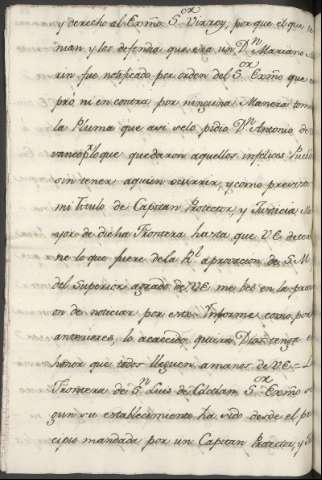 y derecho al Exmō. Sor. Virrey, por que el que te
nian y les defendia que era un Dn. Mariano M
rin fue notificado por orden del Sor. Exmō. que e
pró ni en contra por ninguna Manera tom
la Pluma que asi selo pidio Dn. Antonio de
por lo que quedaron aquellos infelices Pueb
sin tener aquien ocurrir, y como previsto
mi Titulo de Capitan Protector, y Justicia Ma
yor de dicha Frontera hasta que VE. deter
ne lo que fuere dela Rl. aprovacion de S.M.
del Superior agrado de VE. me
on de noticiar por este Ynforme como por
anteriores, lo acaecido quiera Dios tenga e
honor que todos lleguen a manos de VE. = L
Frontera de Sn. Luis de Colotlan Sor. Exmō. se
gun su establecimiento ha sido desde el pri
cipio mandada por un Capitan Protector, y